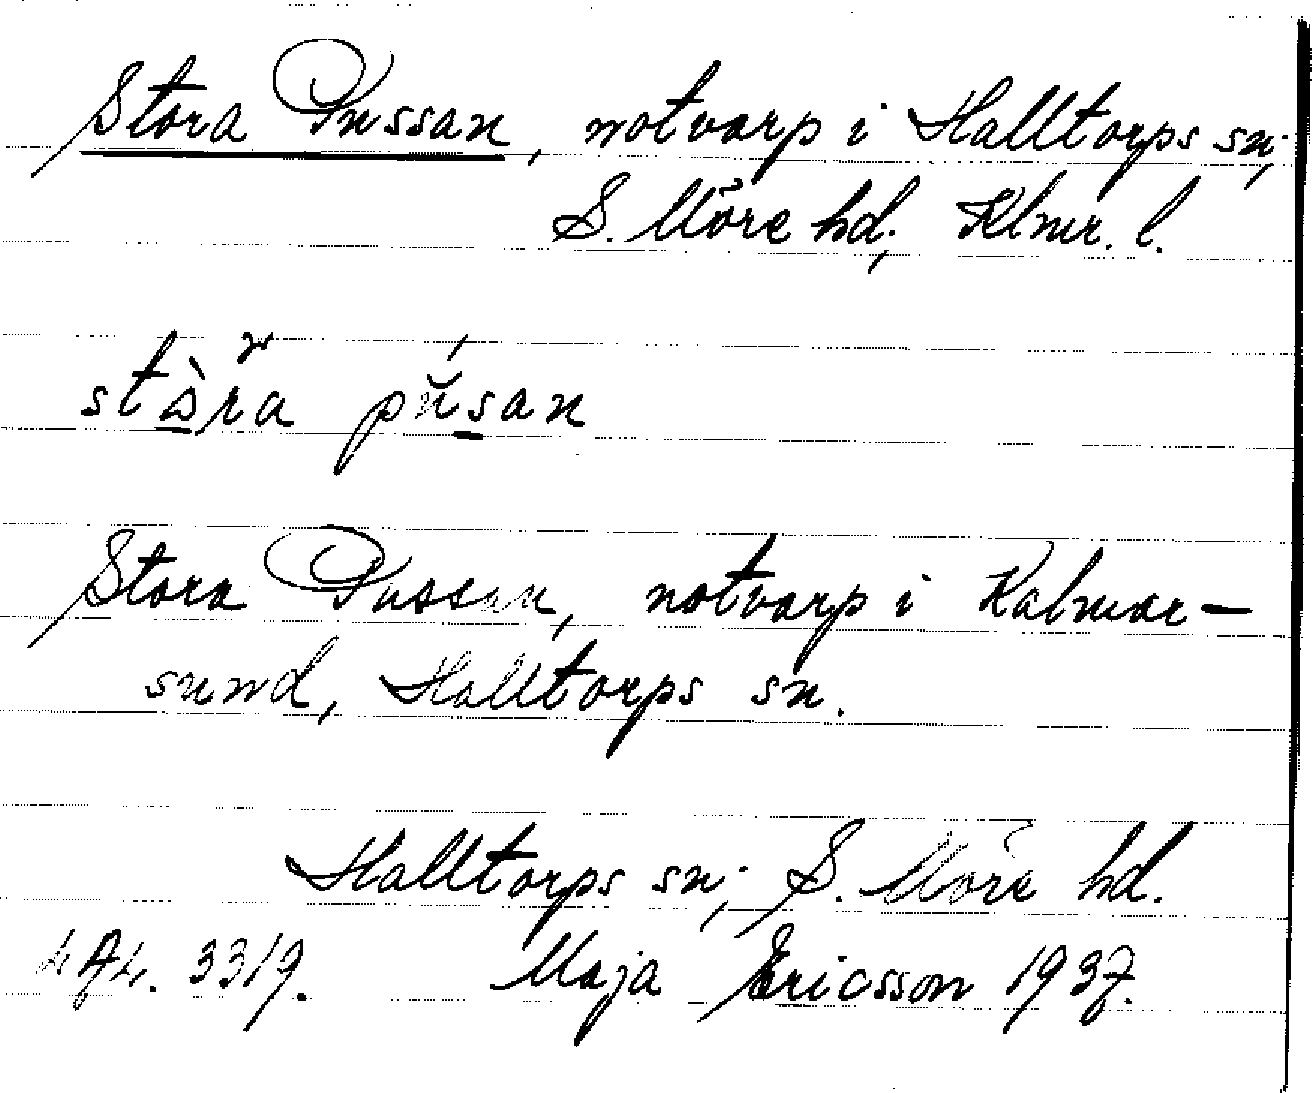 Stora Pussan, notvarp i Halltorps sn.,
S. Möre hd., Klmr. l.
stòra púsan
Stora Pussan, notvarp i Kalmar-
sund, Halltorps sn.
Halltorps sn., S. Möre hd.
3319. Maja Ericsson 1937.